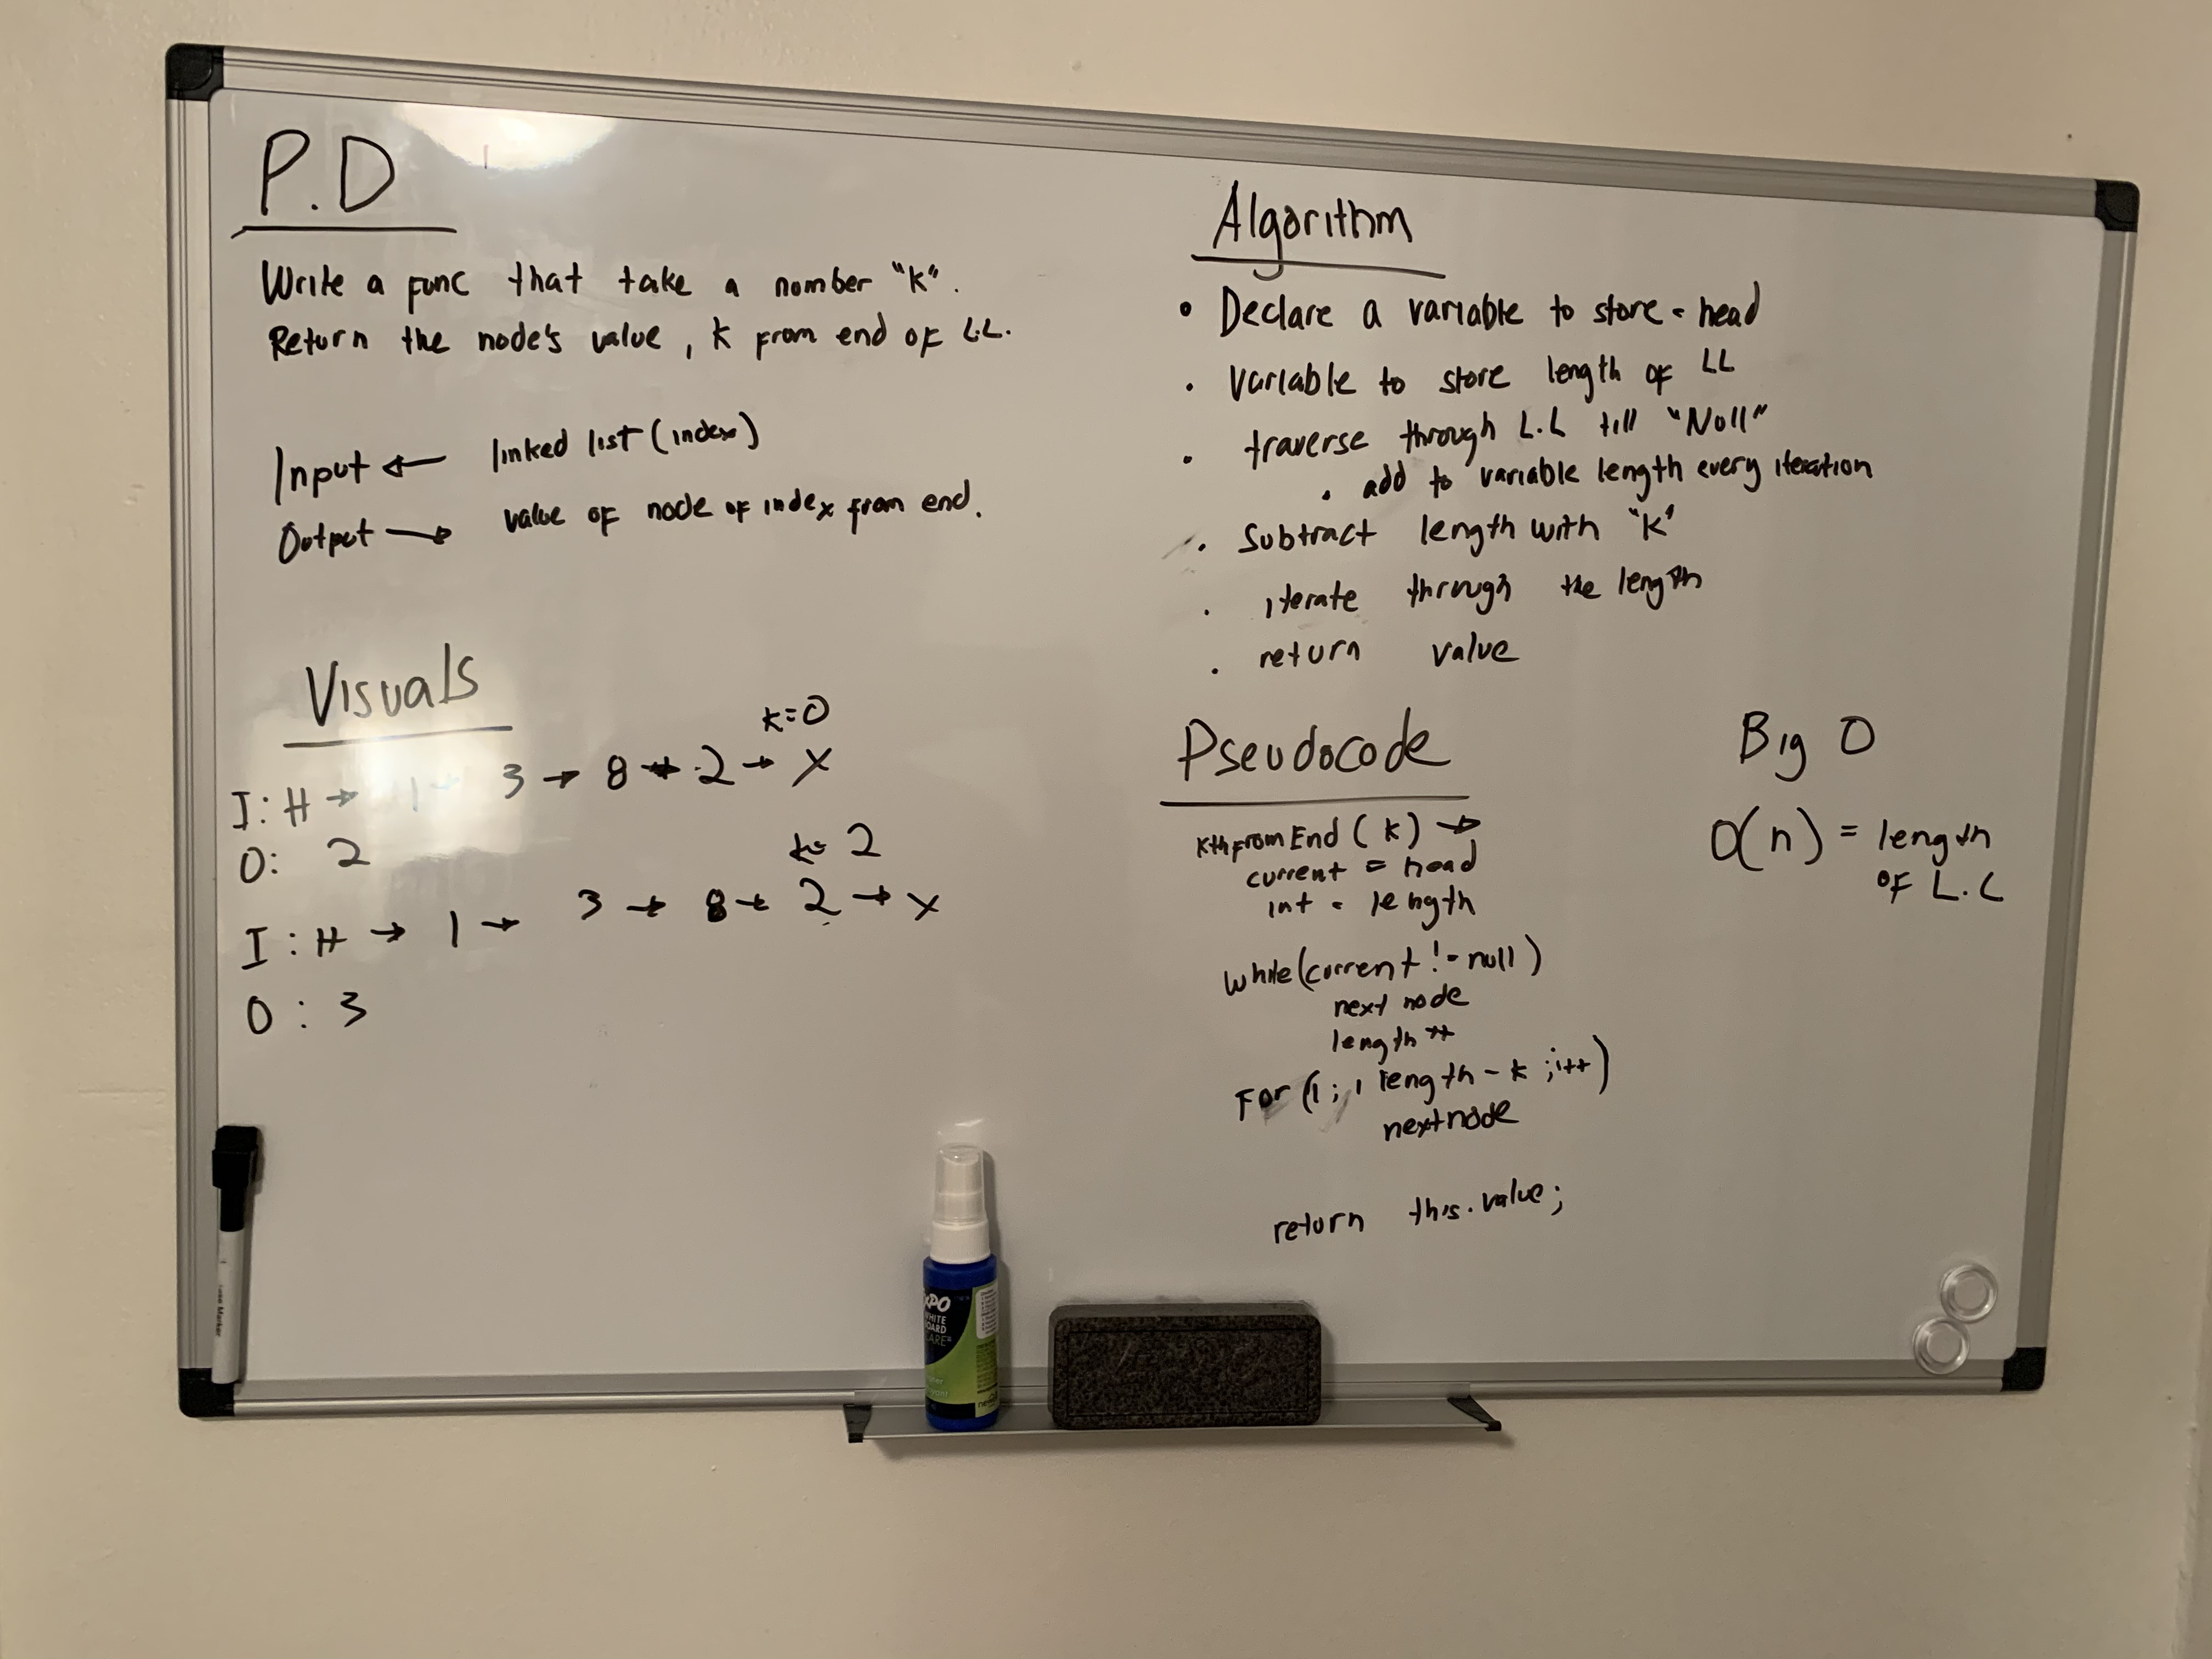 P.D
Write a func that take a number "K".
Return the node's value, k from end of L.L.
Input ← linked list (index)
Output → value of node of index from end.
Visuals
k=0
I: H → 1 → 3 → 8 → 2 → X
O: 2
k= 2
I : H → 1 → 3 → 8 → 2 → X
O : 3
Algorithm
• Declare a variable to store = head
• Variable to store length of LL
• traverse through L.L till "Null"
• add to variable length every iteration
• Subtract length with "K"
• iterate through the length
• return value
Pseudocode
KthFromEnd (k) →
current = head
int = length
while(current != null)
next node
length ++
For (i; i length - k ; i++)
nextnode
return this.value;
Big O
O(n) = length
of L.L
EXPO
WHITE
BOARD
CARE